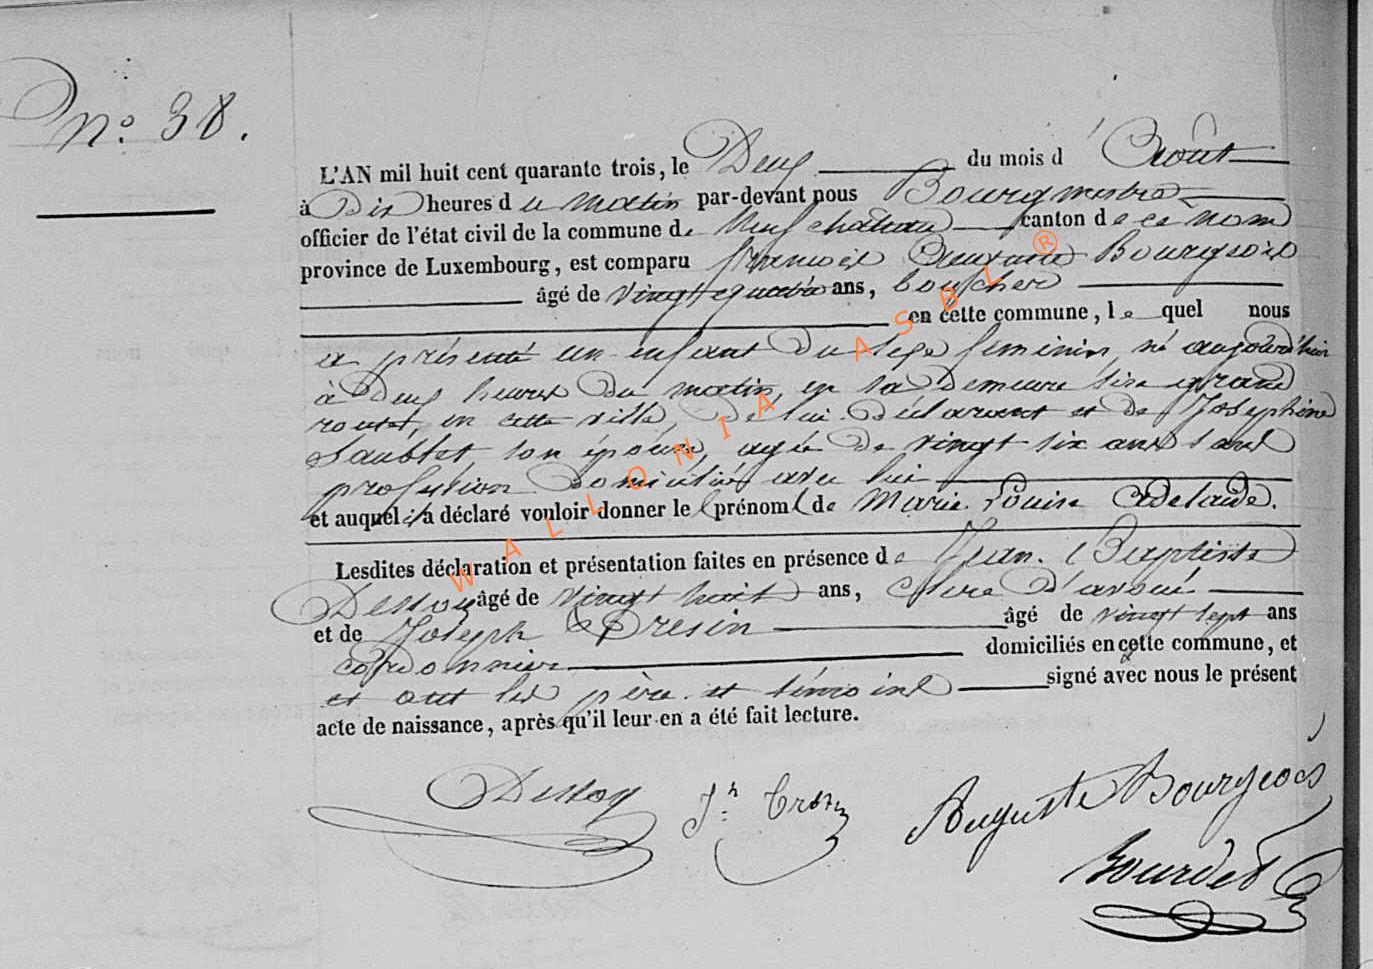 N° 38.
L'AN mil huit cent quarante trois, le Deux du mois d'Août
à Dix heures du matin par-devant nous Bourgmestre
officier de l'état civil de la commune de Neufchateau canton de ce nom
province de Luxembourg, est comparu françois Auguste Bourgeois
âgé de vingt quatre ans, boucher
en cette commune, lequel nous
a présenté un enfant du sexe feminin, né aujourd'hui
à Deux heures du matin, en sa Demeure sise grand
route, en cette ville, de lui Déclarant et de Josephine
son épouse, agée de vingt six ans sans
profession Domiciliée avec lui
et auquel il a déclaré vouloir donner le prénom de Marie Louise Adelaide.
Lesdites déclaration et présentation faites en présence de Jean Baptiste
Dessoy âgé de vingt huit ans, Clerc d'avoué
et de Joseph Cresin âgé de vingt sept ans
cordonnier domiciliés en cette commune, et
et ont les père et témoins signé avec nous le présent
acte de naissance, après qu'il leur en a été fait lecture.
Dessoy Jh Auguste Bourgeois
Bourdet
WALLONIA ASBL ®